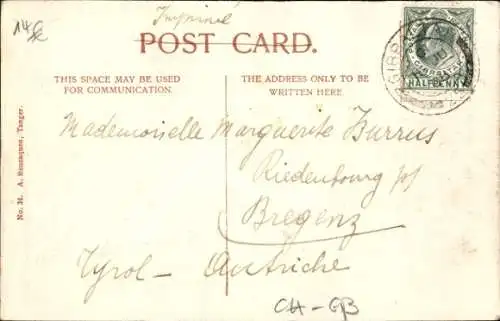 14
Imprimé
POST CARD.
THIS SPACE MAY BE USED
FOR COMMUNICATION.
THE ADDRESS ONLY TO BE
WRITTEN HERE.
GIBR
GIBRALTAR
HALFPENNY
No. 31. A. Benzaquen, Tanger.
Mademoiselle Marguerite Burrus
Riedenbourg
Bregenz
Tyrol - Autriche
CH-GB